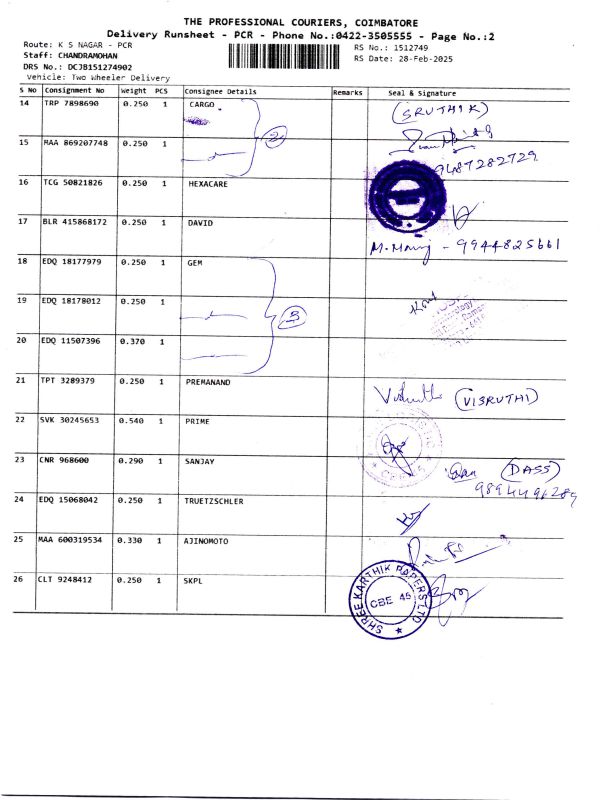 THE PROFESSIONAL COURIERS, COIMBATORE
Delivery Runsheet - PCR - Phone No.:0422-3505555 - Page No.:2
Route: K S NAGAR - PCR
RS No.: 1512749
Staff: CHANDRAMOHAN
RS Date: 28-Feb-2025
DRS No.: DCJB151274902
Vehicle: Two Wheeler Delivery
S No Consignment No Weight PCS Consignee Details Remarks Seal & Signature
14 TRP 7898690 0.250 1 CARGO (SRUTHIK)
2
15 MAA 869207748 0.250 1
9487282729
16 TCG 50821826 0.250 1 HEXACARE
17 BLR 415868172 0.250 1 DAVID
M. Manoj - 9944825661
18 EDQ 18177979 0.250 1 GEM
19 EDQ 18178012 0.250 1
3
20 EDQ 11507396 0.370 1
21 TPT 3289379 0.250 1 PREMANAND (VISRUTHI)
22 SVK 30245653 0.540 1 PRIME
23 CNR 968600 0.290 1 SANJAY (DASS)
9894496289
24 EDQ 15068042 0.250 1 TRUETZSCHLER
25 MAA 600319534 0.330 1 AJINOMOTO
26 CLT 9248412 0.250 1 SKPL
SHREE KARTHIK PAPERS LTD
CBE 45